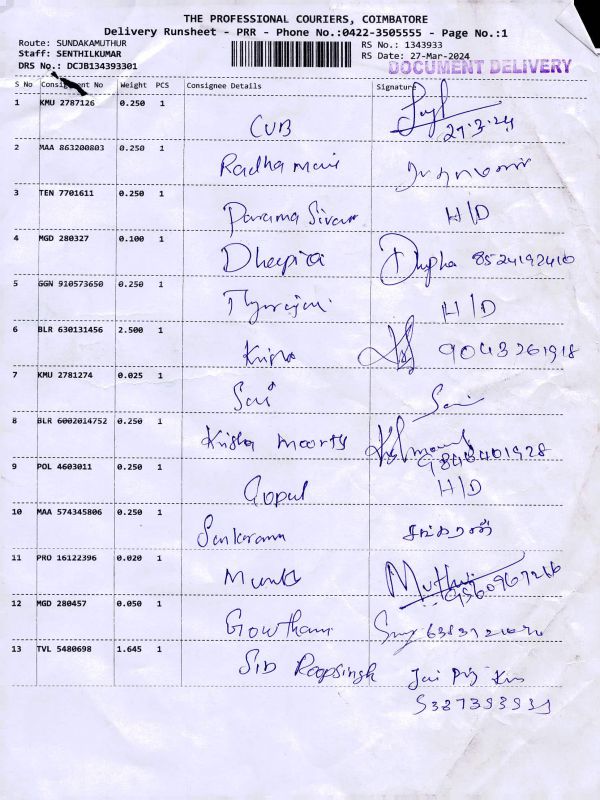 THE PROFESSIONAL COURIERS, COIMBATORE
Delivery Runsheet - PRR - Phone No.:0422-3505555 - Page No.:1
Route: SUNDAKAMUTHUR
RS No.: 1343933
Staff: SENTHILKUMAR
RS Date: 27-Mar-2024
DRS No.: DCJB134393301
DOCUMENT DELIVERY
S No Consignment No Weight PCS Consignee Details Signature
1 KMU 2787126 0.250 1
CUB 27.3.24
2 MAA 863200803 0.250 1
Radha mani
3 TEN 7701611 0.250 1
Parama Sivam H/D
4 MGD 280327 0.100 1
8524192410
5 GGN 910573650 0.250 1
H/D
6 BLR 630131456 2.500 1
Krisha 9043261918
7 KMU 2781274 0.025 1
Sai Sai
8 BLR 6002014752 0.250 1
Krisha moorty
9 POL 4603011 0.250 1
Gopul H/D
10 MAA 574345806 0.250 1
Sankarama சங்கரன்
11 PRO 16122396 0.020 1
Muthu
12 MGD 280457 0.050 1
Gowtham
13 TVL 5480698 1.645 1
Roopsingh